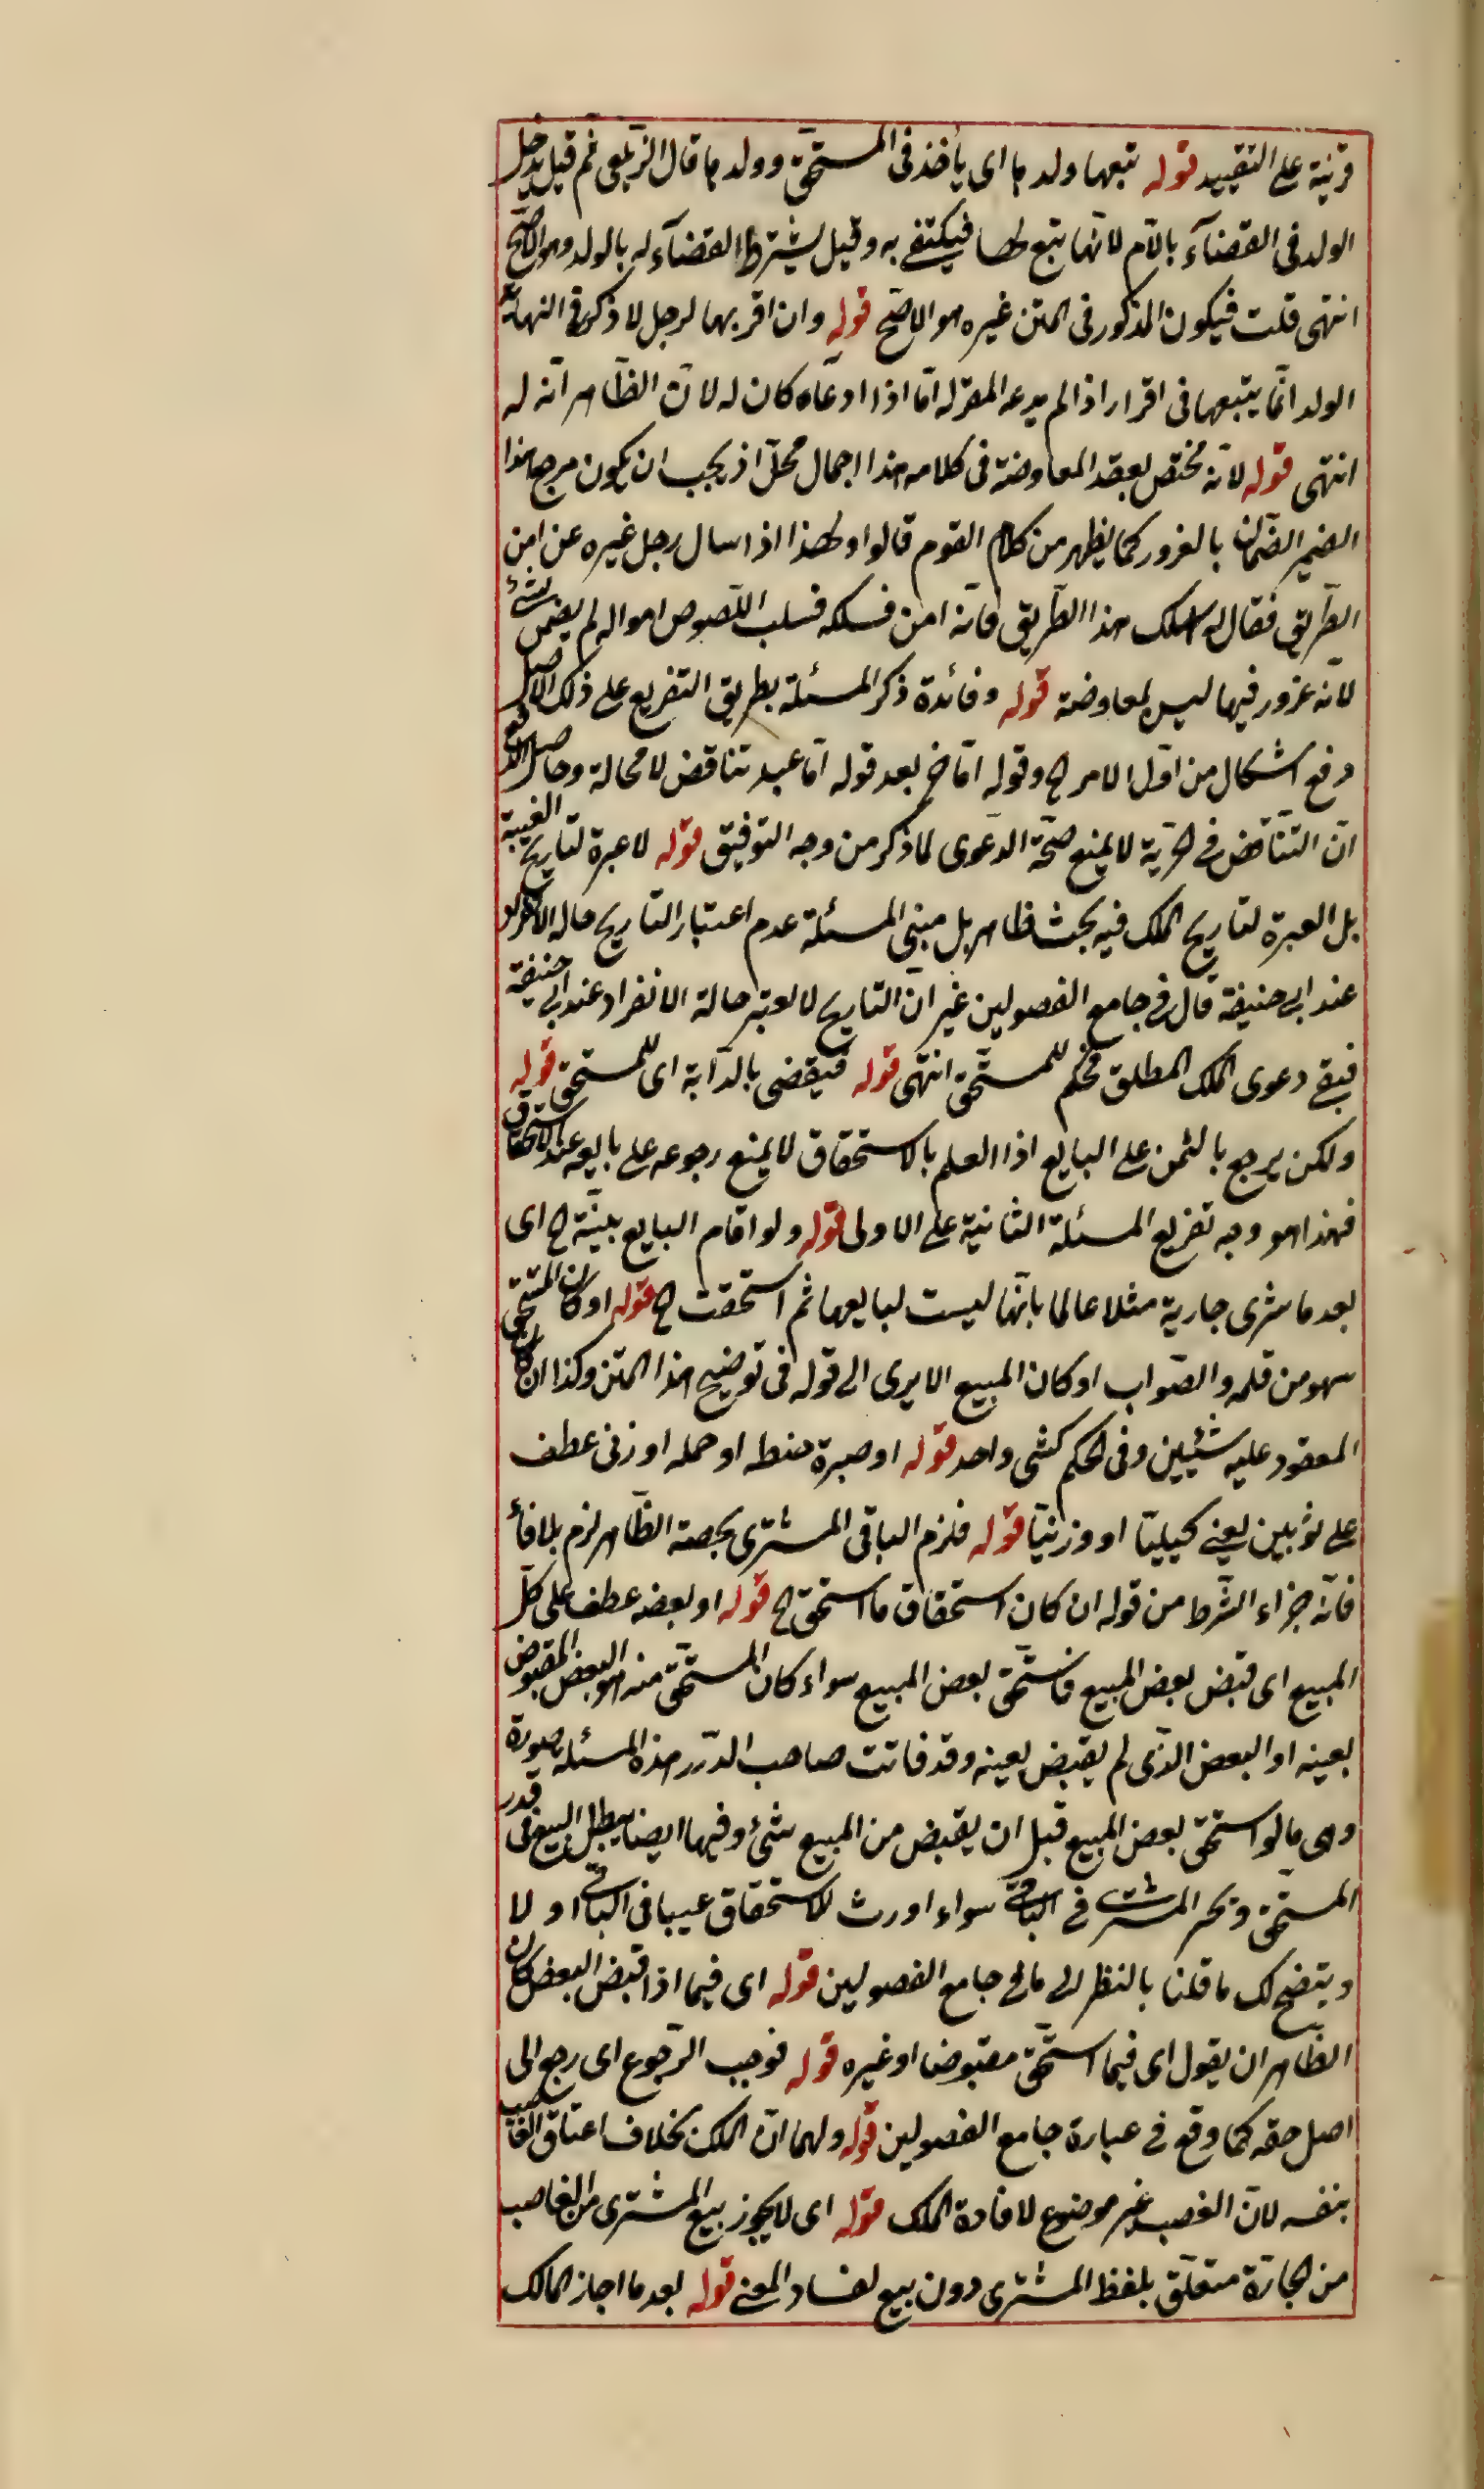 قرينة على التقييد قوله تبعها ولدها اى يأخذ فى المستحق وولدها قال الزيلعى ثم قيل يدخل
الولد فى القضاء بالام لانها تبع لها فيكتفى به وقيل يشترط القضاء له بالولد وهو الاصح
انتهى قلت فيكون المذكور فى المتن غيره هو الاصح قوله وان اقر بها لرجل لا ذكر فى النهاية
الولد انما يتبعها فى اقرار اذا لم يدعه المقر له اما اذا ادعاه كان له لان الظاهر انه له
انتهى قوله لانه مختص بعقد المعاوضة فى كلامه هذا اجمال مخل اذ يجب ان يكون مرجع هذا
الضمير الضمان بالغرور كما يظهر من كلام القوم قالوا ولهذا اذا سال رجل غيره عن امن
الطريق فقال له اسلك هذا الطريق فانه امن فسلكه فسلب اللصوص امواله لم يضمن بشئ
لانه غرور فيها ليس بمعاوضة قوله وفائدة ذكر المسئلة بطريق التفريع على ذلك الاصل
دفع اشكال من اول الامر الخ وقوله اما خ بعد قوله انا عبد تناقض لا محالة وحاصل الدفع
ان التناقض فى الحرية لا يمنع صحة الدعوى لما ذكر من وجه التوفيق قوله لا عبرة لتاريخ الغيبة
بل العبرة لتاريخ الملك فيه بحث ظاهر بل مبنى المسئلة عدم اعتبار التاريخ حالة الانفراد
عند ابى حنيفة قال فى جامع الفصولين غير ان التاريخ لا يعتبر حالة الانفراد عند ابى حنيفة
فبقى دعوى الملك المطلق فحكم للمستحق انتهى قوله فيقضى بالدابة اى للمستحق قوله
ولكن يرجع بالثمن على البايع اذا العلم بالاستحقاق لا يمنع رجوعه على بايعه عند الاستحقاق
فهذا هو وجه تفريع المسئلة الثانية على الاولى قوله ولو اقام البايع بينة الخ اى
بعد ما شرى جارية مثلا عالما بانها ليست لبايعها ثم استحقت الخ قوله او كان المستحق
سهو من قلمه والصواب او كان المبيع الا يرى الى قوله فى توضيح هذا المتن وكذا ان كان
المعقود عليه شيئين وفى الحكم كشى واحد قوله او صبرة حنطه او حمله او زنى عطف
على ثوبين يعنى كيليا او وزنيا قوله فلزم الباقى المشترى بحصته الظاهر لزم بلا فاء
فانه جزاء الشرط من قوله ان كان استحقاق ما استحق الخ قوله او بعضه عطف على كل
المبيع اى قبض بعض المبيع فاستحق بعض المبيع سواء كان المستحق منه هو البعض المقبوض
بعينه او البعض الذى لم يقبض بعينه وقد فاتت صاحب الدرر هذه المسئلة صورة
وهى ما لو استحق بعض المبيع قبل ان يقبض من المبيع شئ وفيها ايضا يبطل البيع فى قدر
المستحق وتخير المشترى فى الباقى سواء اورث الاستحقاق عيبا فى الباقى او لا
ويتضح لك ما قلنا بالنظر الى ما فى جامع الفصولين قوله اى فيما اذا قبض البعض كان
الظاهر ان يقول اى فيما استحق مقبوضا او غيره قوله فوجب الرجوع اى رجع الى
اصل حقه كما وقع فى عبارة جامع الفصولين قوله ولهما ان الملك بخلاف اعتاق الغاصب
بنفسه لان الغصب غير موضوع لافادة الملك قوله اى لا يجوز بيع المشترى من الغاصب
من اجازة متعلق بلفظ المشترى دون بيع لفساد المعنى قوله بعد ما اجاز المالك